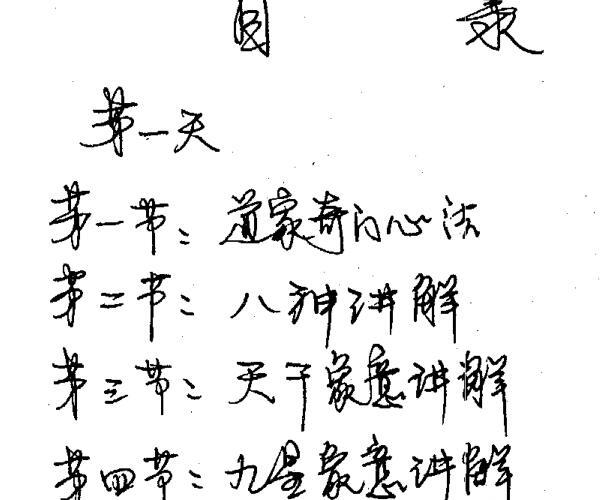 目 录
第一天
第一节：道家奇门心法
第二节：八神讲解
第三节：天干象意讲解
第四节：九星象意讲解